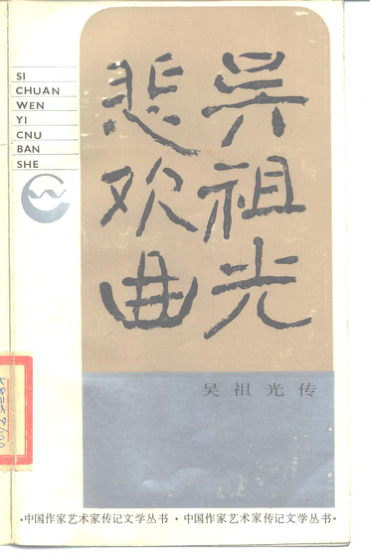 SI
CHUAN
WEN
YI
CNU
BAN
SHE
吴祖光
悲欢曲
吴祖光传
·中国作家艺术家传记文学丛书·中国作家艺术家传记文学丛书·